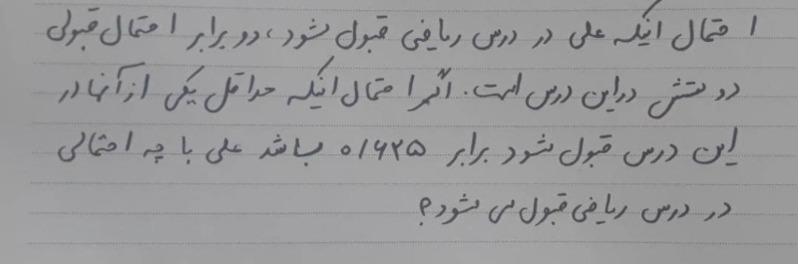 احتمال اینکه علی در درس ریاضی قبول شود، دو برابر احتمال قبولی
دوستش در این درس است. اگر احتمال اینکه حداقل یکی از آنها در
این درس قبول شود برابر ۰/۶۲۵ باشد علی با چه احتمالی
در درس ریاضی قبول می شود؟